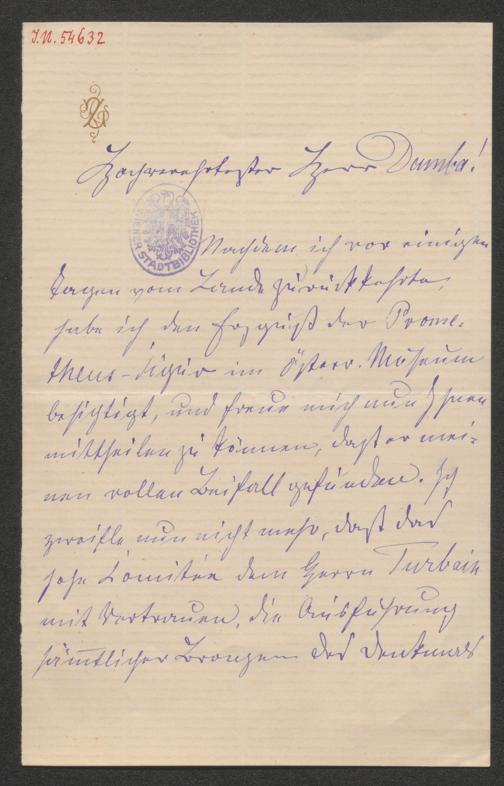 I.N. 54632
Hochverehrtester Herr Dumba!
WIENER STADTBIBLIOTHEK
Nachdem ich vor einigen
Tagen vom Lande zurückkehrte,
habe ich den Erzguß der Prome-
theus-Figur im österr. Museum
besichtigt, und freue mich nun Ihnen
mittheilen zu können, daß er mei-
nen vollen Beifall gefunden. Ich
zweifle nun nicht mehr, daß das
hohe Comitée dem Herrn Turbain
mit Vertrauen, die Ausführung
sämtlicher Bronzen des Denkmals